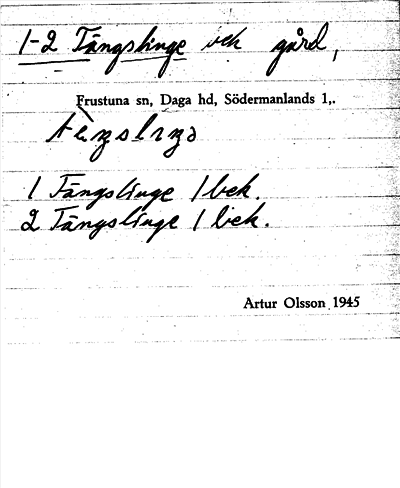 1-2 Tängslinge bek gård,
Frustuna sn, Daga hd, Södermanlands l,.
1 Tängslinge 1 bek.
2 Tängslinge 1 bek.
Artur Olsson 1945